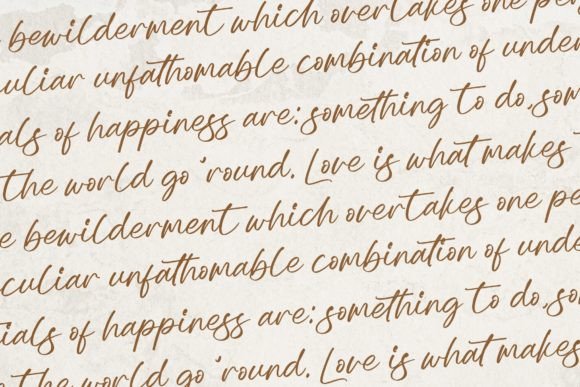 bewilderment which overtakes one pe
culiar unfathomable combination of under
ials of happiness are: something to do, som
the world go 'round. Love is what makes
e bewilderment which overtakes one pe
culiar unfathomable combination of unde
tials of happiness are: something to do, so
the world go 'round. Love is what makes